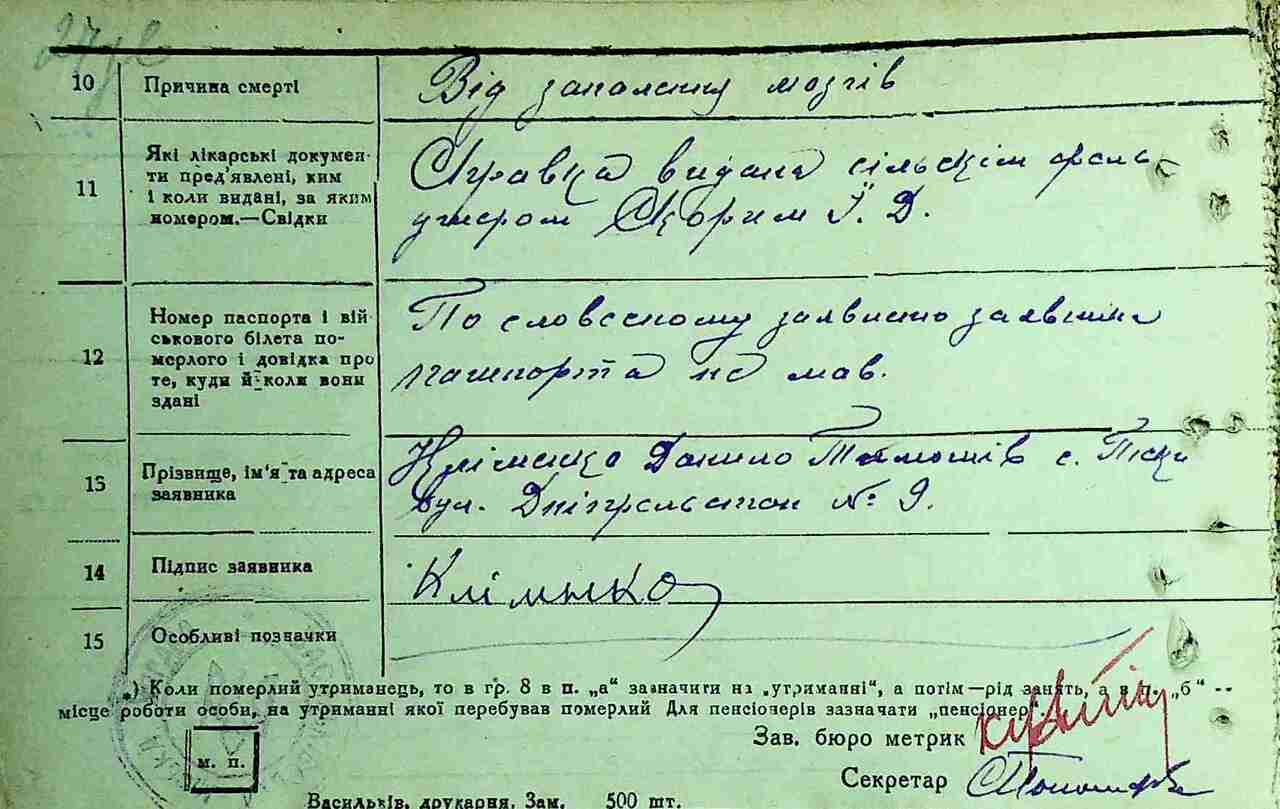 10 Причина смерті Від запалення мозгів
11 Які лікарські докумен-
ти пред'явлені, ким
і коли видані, за яким
номером.—Свідки
Справка видана сільскім фель
дшером Скорим Ї. Д.
12 Номер паспорта і вій
ськового білета по-
мерлого і довідка про
те, куди й коли вони
здані
По словесному заявлению заявника
пашпорта не мав.
13 Прізвище, ім'я та адреса
заявника
Кліменко Данило Тимошів с. Піски
вул. Дніпрельстан № 9.
14 Підпис заявника Клімнко
15 Особливі позначки
*) Коли померлий утриманець, то в гр. 8 в п. „а" зазначити на „утриманні", а потім—рід занять, а в п. „б" --
місце роботи особи, на утриманні якої перебував померлий Для пенсіонерів зазначати „пенсіонер"
м. п.
Зав. бюро метрик
Секретар
Васильків, друкарня, Зам. 500 шт.